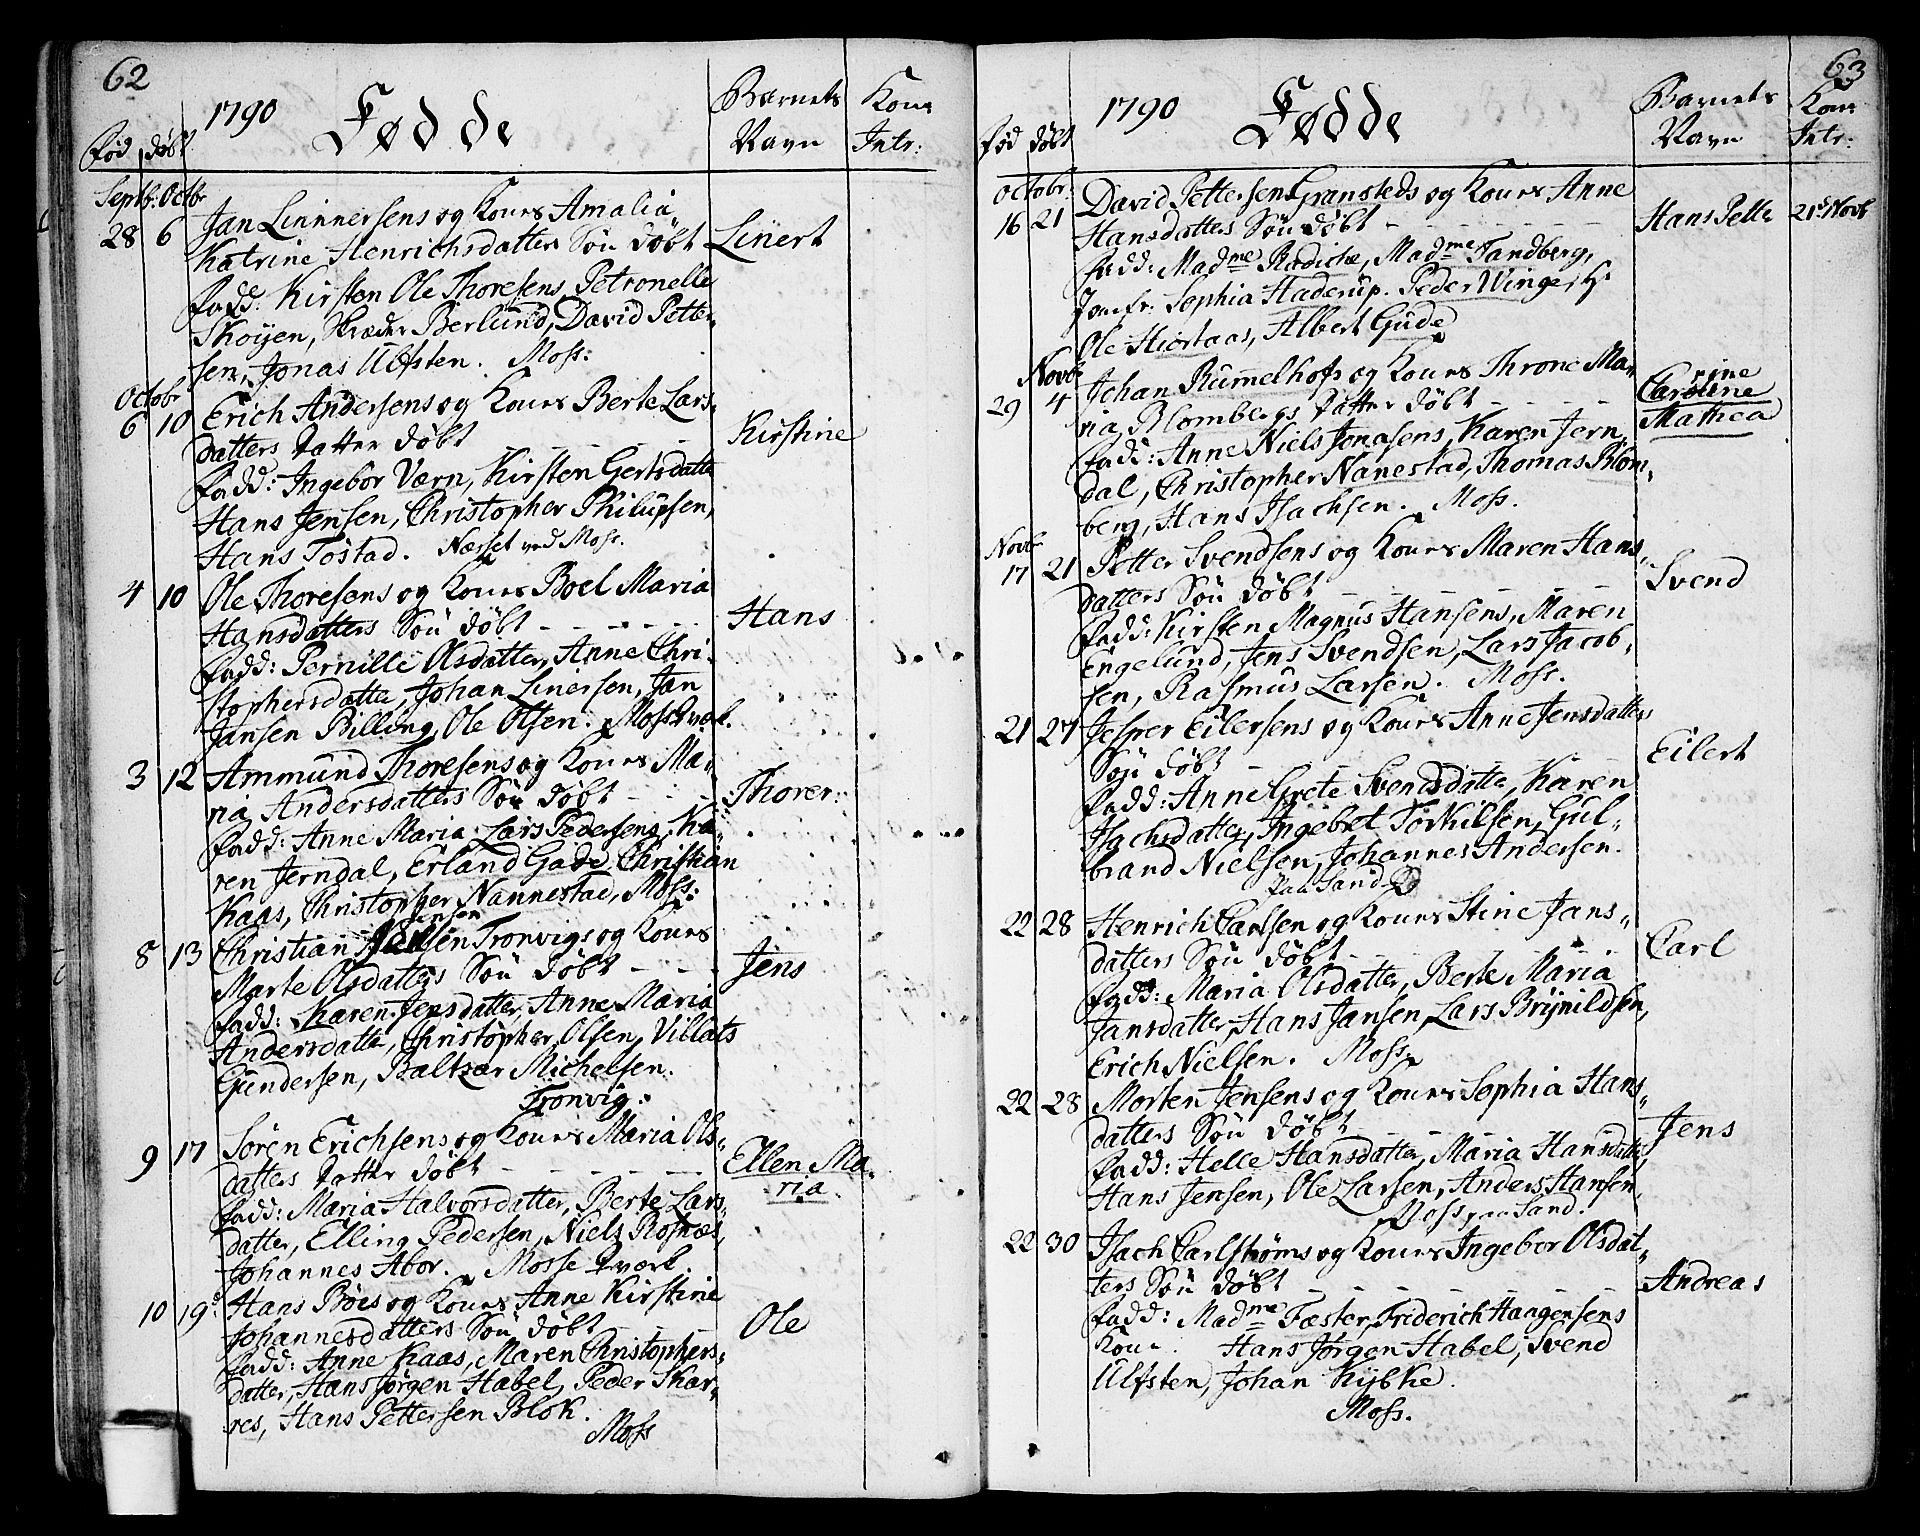 62
1790 Fødde
Barnets Navn
Kone Intr:
Fød døbt
Septb: Octbr
28 6 Jan Linnnersens og Kones Amalia
Katrine Henrichsdatters Søn døbt Linert
Fadd: Kirsten Ole Thoresens, Petronelle
Skoÿen, Skræder Berlund, David Petter-
sen, Jonas Ulfsten. Moss:
Octobr
6 10 Erich Andersens og Kones Berte Lars-
datters datter døbt - - - - Kirstine
Fadd: Ingebor Værn, Kirsten Gertsdatte
Hans Jensen, Christopher Philupsen,
Hans Tostad. Nesset ved Moss.
4 10 Ole Thoresens og Kones Boel Maria
Hansdatters Søn døbt - - - - - Hans
Fadd: Pernille Olsdatter, Anne Chri-
stophersdatte, Johan Linersen, Jan
Jansen Billing, Ole Olsen. Moss Værk.
3 12 Ammund Thoresens og Kones Ma-
ria Andersdatters Søn døbt - - - Thorer:
Fadd: Anne Maria Lars Pedersens, Ka-
ren Jerndal, Erland Gade, Christian
Kaas, Christopher Nannestad, Moss:
8 13 Christian Jansen Tronvigs og Kones
Marte Olsdatters Søn døbt - - - - Jens
Fadd: Karen Jensdatter, Anne Maria
Andersdatte, Christopher Olsen, Villats
Gundersen, Baltzar Michelsen.
Tronvig:
9 17 Sören Erichsens og Kones Maria Ols-
datters datter døbt - - - - - - Ellen Ma-
ria
Fadd: Maria Halvorsdatter, Berte Lars-
datter, Elling Pedersen, Niels Rosnæs,
Johannes Abor. Mosse Værk.
10 19d Hans Böes og Kones Anne Kirstine
Johannesdatters Søn døbt - - - Ole
Fadd: Anne Kaas, Maren Christophers-
datter, Hans Jörgen Habel, Peder Skar-
res, Hans Pettersen Blok.
Moss
63
1790 Fødde
Barnets Navn
Kone Intr:
Fød døbt
Octobr:
16 21 David Pettersens Gransteds og Kones Anne
Hansdatters Søn døbt - - - - - - Hans Pette 21d Novb
Fadd: Madme Radiche, Madme Tandberg,
Jomfr. Sophia Haderup. Peder Winge, Hr
Ole Hiortaas, Albert Gude
Novb
29 4 Johan Rummelhofs og Kones Throne Ma-
ria Blombergs datter døbt - - - - Carorine
Mathea
Fadd: Anne Niels Jonasens, Karen Jern-
dal, Christopher Nanestad, Thomas Blom-
berg, Hans Isachsen. Moss.
Novb:
17 21 Petter Svendsens og Kones Maren Hans-
datters Søn døbt - - - - - - Svend
Fadd: Kirsten Magnus Hansens, Maren
Engelund, Jens Svendsen, Lars Jacob-
sen, Rasmus Larsen. Moss.
21 27 Jesper Eilersens og Kones Anne Jensdatters
Søn døbt - - - - - - Eilert
Fadd: Anne Grete Svendsdatte, Karen
Isachsdatter, Ingebret Torkilsen, Gul-
brand Nielsen, Johannes Andersen.
paa Sand
22 28 Henrich Carlsen og Kones Stine Jans-
datters Søn døbt - - - - - Carl
Fadd: Maria Olsdatter, Berte Maria
Jansdatter, Hans Jansen, Lars Brÿnildsen,
Erich Nielsen. Moss
22 28 Morten Jensens og Kones Sophia Hans-
datters Søn døbt - - - - - Jens
Fadd: Helle Hansdatter, Maria Hansdatte,
Hans Jensen, Ole Larsen, Anders Hansen,
Moss paa Sand.
22 30 Isach Carlströms og Kones Ingebor Olsdat-
ters Søn døbt - - - - - - Andreas
Fadd: Madme Fæster, Friderich Haagensens
Kone. Hans Jörgen Habel, Svend
Ulfsten, Johan Kÿbke.
Moss.